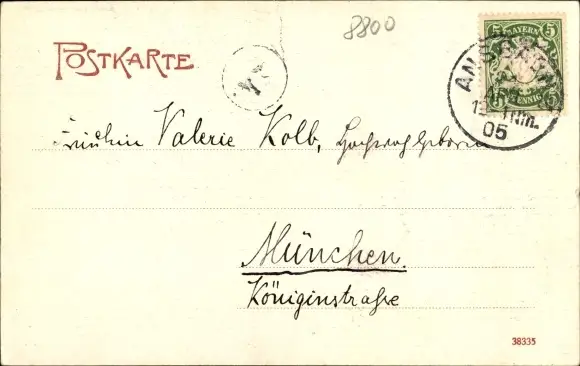 8800
POSTKARTE
BAYERN
5 5
PFENNIG
ANSBACH
Nm.
05
Fräulein Valerie Kolb, Hochwohlgeboren
München.
Königinstraße
38335